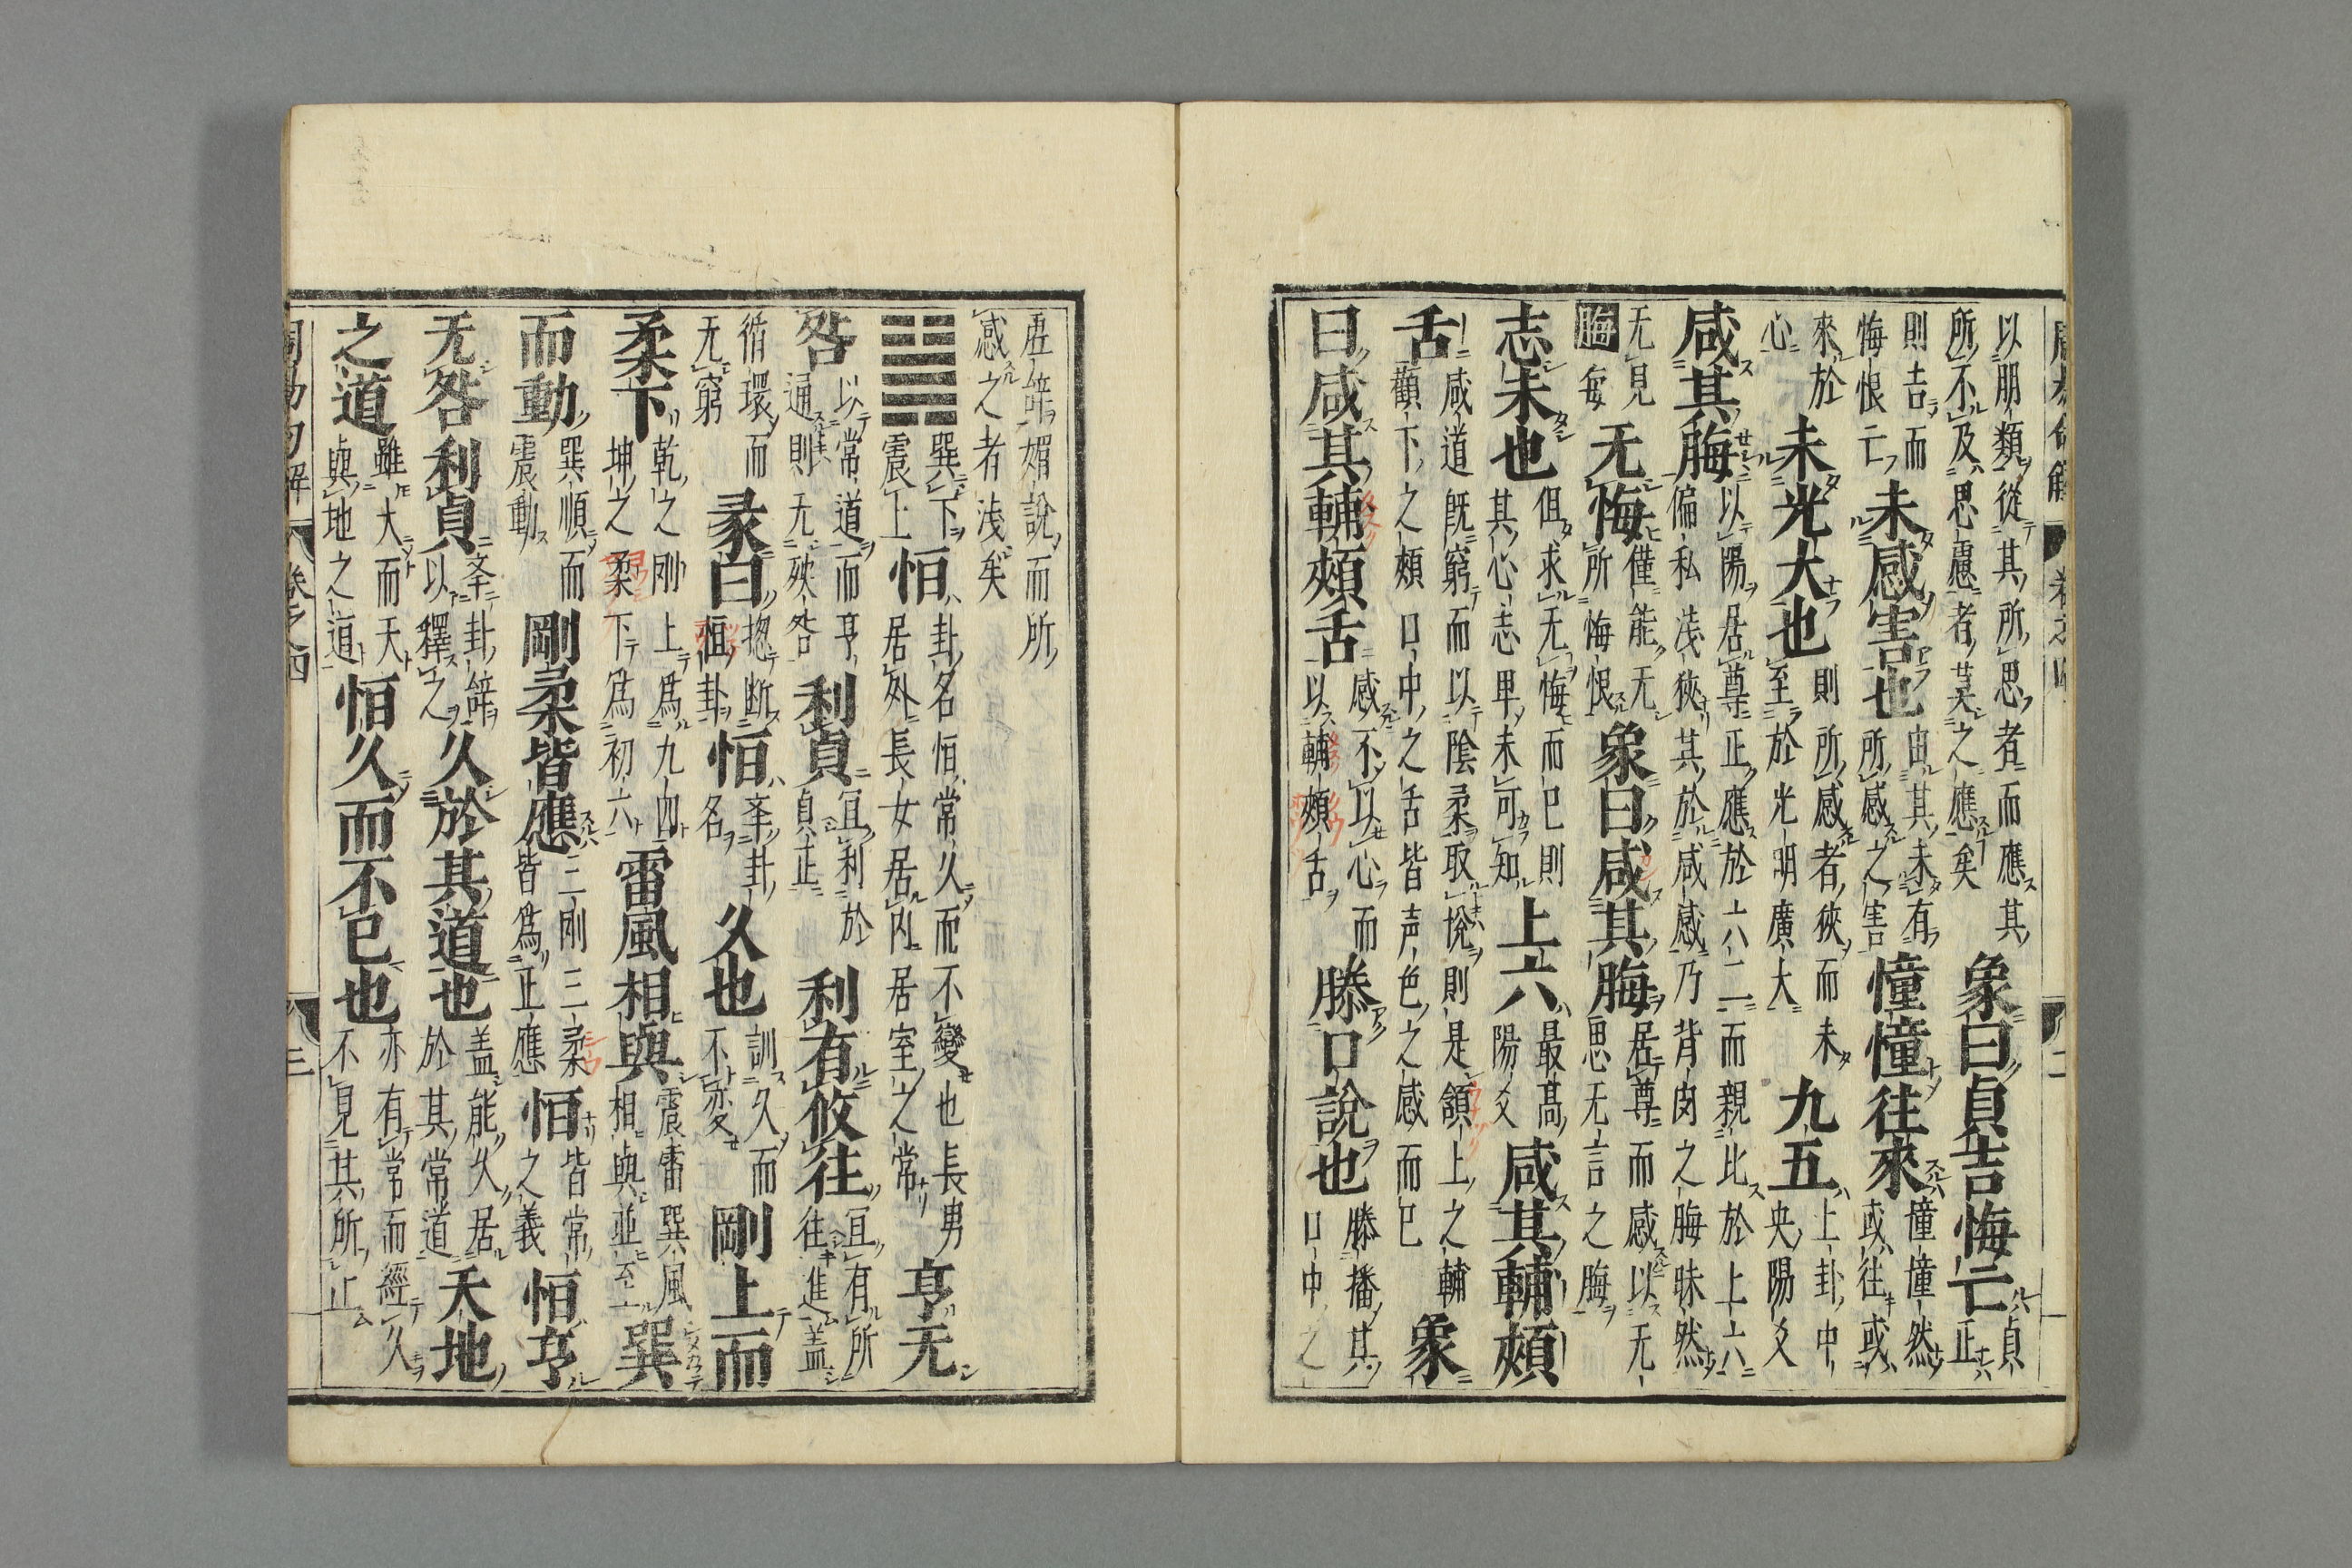 周易句解 卷之四 二
以朋類從其所思者而應其
所不及思慮者莫之應矣
象曰貞吉悔亡
貞正
則吉而
悔恨亡
未感害也
由其未有
所感之害
憧憧往來
憧憧然
或往或
來於
心
未光大也
則所感者狹而未
至於光明廣大
九五
上卦中
央陽爻
咸其脢
以陽居尊正應於六二而親比於上六
偏私淺狹其於咸感乃背肉之脢昧然
无見
脢每
无悔
僅能无
所悔恨
象曰咸其脢
居尊而感以无
思无言之脢
志未也
但求无悔而已則
其心志卑未可知
上六
最高
陽爻
咸其輔頰
舌
咸道既窮而以陰柔取悅則是頷上之輔
顴下之頰口中之舌皆声色之感而已
象
曰咸其輔頰舌
感不以心而
以輔頰舌
滕口說也
滕播其
口中之
唇辞媚說而所
感之者淺矣
巽下
震上
恒
卦名恒常久而不變也長男
居外長女居内居室之常
亨无
咎
以常道而亨
通則无殃咎
利貞
宜利於
貞正
利有攸往
宜有所
往進盖
循環而
无窮
彖曰
揔断
恒卦
恒
夅卦
名
久也
訓久而
不変
剛上而
柔下
乾之刚上爲九四
坤之柔下爲初六
雷風相與
震雷巽風
相與並至
巽
而動
巽順而
震動
剛柔皆應
三剛三柔
皆爲正應
恒
皆常
之義
恒亨
无咎利貞
夅卦辞
以釋之
久於其道也
盖能久居
於其常道
天地
之道
雖大而天
與地之道
恒久而不已也
亦有常而經久
不見其所止
周易句解 卷之四 三